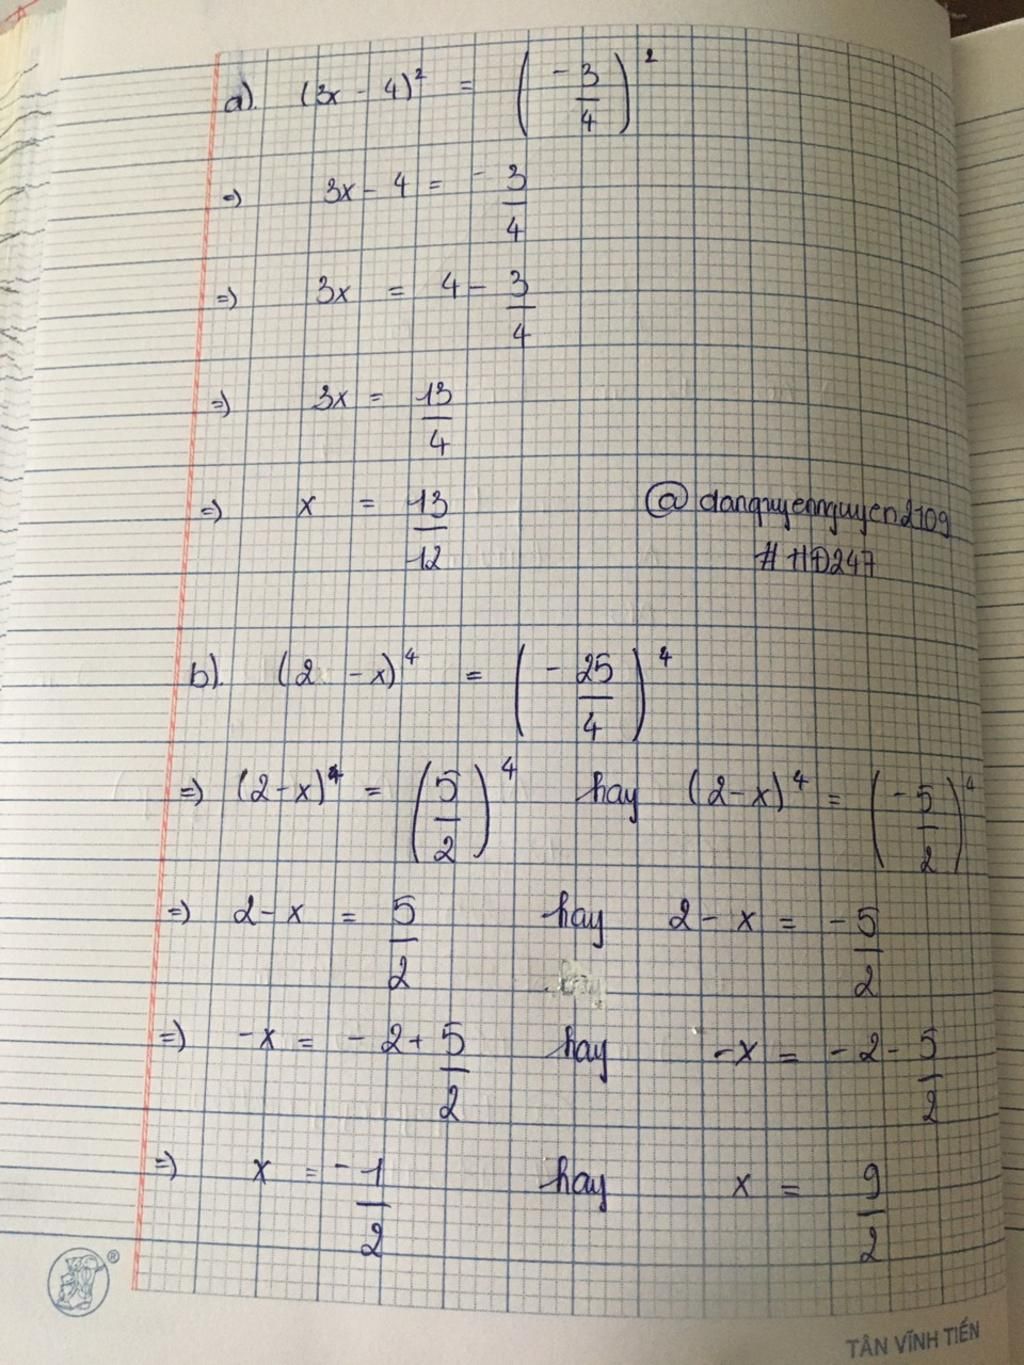 a). (3x - 4)² = (-3/4)²
=) 3x - 4 = -3/4
=) 3x = 4 - 3/4
=) 3x = 13/4
=) x = 13/12
@danquyennguyen2109
#HD247
b). (2 - x)⁴ = (-25/4)⁴
=) (2-x)⁴ = (5/2)⁴ hay (2-x)⁴ = (-5/2)⁴
=) 2 - x = 5/2 hay 2 - x = -5/2
=) -x = -2 + 5/2 hay -x = -2 - 5/2
=) x = -1/2 hay x = 9/2
®
TÂN VĨNH TIẾN